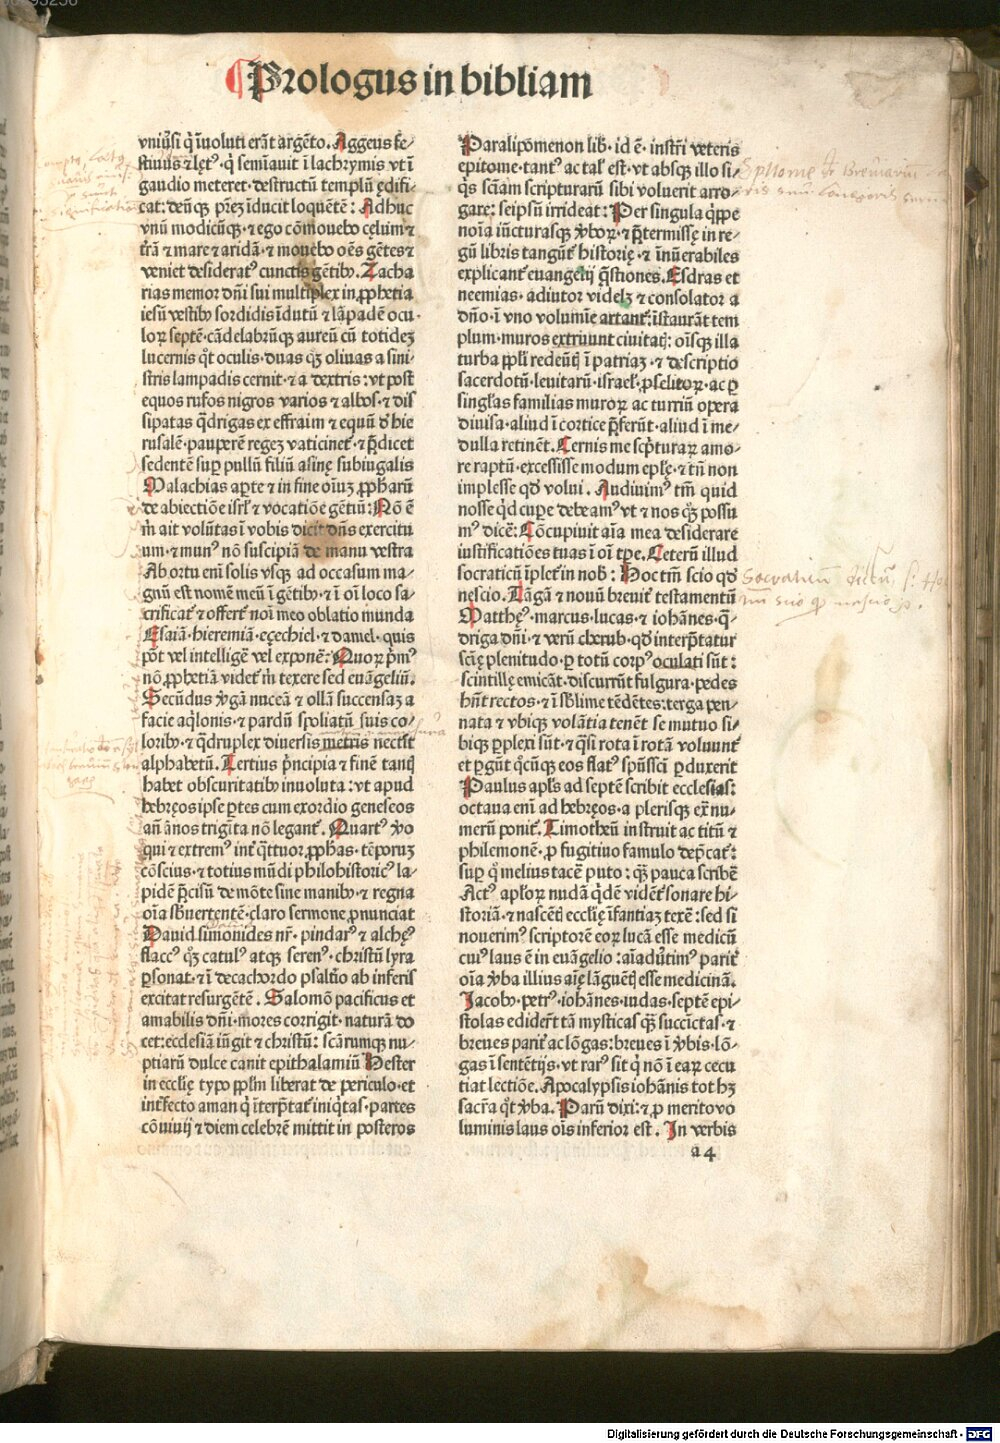 Prologus in bibliam
vniu͛si q̇ īuoluti erāt argēto. Aggeus fe⸗
stiuus ⁊ lęt⁹. q̇ semīauit ī lachrymis vt ī
gaudio meteret. destructū templū edifi⸗
cat: deūq; prēz īducit loquētē: Adhuc
vnū modicūq; ⁊ ego cōmouebo cęlum ⁊
trā ⁊ mare ⁊ aridā. ⁊ mouebo oēs gētes ⁊
veniet desiderat⁹ cunctis gētib⁹. Zacha
rias memor dn̄i sui multiplex in ꝓphetia
iesū vestib⁹ sordidis īdutū ⁊ lāpadē ocu⸗
loꝝ septē. cādelabrūq; aureū cū totideʒ
lucernis q̇t oculis. duas qʒ oliuas a sini⸗
stris lampadis cernit. ⁊ a dextris: vt post
equos rufos nigros varios ⁊ albos. ⁊ dis
sipatas q̄drigas ex effraim ⁊ equū ď hie
rusalē. pauperē regeʒ vaticinet᷑. ⁊ p̄dicet
sedentē suꝑ pullū filiū asinę subiugalis
Malachias aꝑte ⁊ in fine oīuʒ ꝓpharū
de abiectiōe isrl̓ ⁊ vocatiōe gētiū: Nō ē
m̄ ait volūtas ī vobis dicit dn̄s exercitu
um. ⁊ mun⁹ nō suscipiā de manu vestra
Ab ortu eni solis vsq; ad occasum ma⸗
gnū est nomē meū ī gētib⁹. ⁊ ī oī loco sa⸗
crificat᷑ ⁊ offert᷑ noī meo oblatio munda
Esaiā. hieremiā. eçechiel. ⁊ daniel. quis
pōt vel intelligē vel exponē: Quoꝝ p̍m⁹
nō ꝓphetiā videt᷑ m̄ texere sed euāgeliū.
Secūdus v͛gā nuceā ⁊ ollā succensaʒ a
facie aq̇lonis. ⁊ pardū spoliatū suis co⸗
lorib⁹. ⁊ q̄druplex diuersis metris nectit
alphabetū. Tertius p̍ncipia ⁊ finē tantꝗ
habet obscuritatib⁹ inuoluta: vt apud
hebręos ipse ꝑtes cum exordio geneseos
añ ānos trigīta nō legant᷑. Quart⁹ v͛o
qui ⁊ extrem⁹ int᷑ q̄ttuor ꝓphās. tēporuʒ
cōscius. ⁊ totius mūdi philohistoric⁹ la⸗
pidē p̄cisū de mōte sine manib⁹ ⁊ regna
oīa sb̓uertentē. claro sermone ꝓnunciat
Dauid simonides nr̄. pindar⁹ ⁊ alchę⁹
flacc⁹ qʒ catul⁹ atq; seren⁹. christū lyra
ꝑsonat. ⁊ ī decachordo psaltīo ab inferis
excitat resurgētē. Salomō pacificus et
amabilis dn̄i. mores corrigit. naturā do
cet: ecclesiā iūgit ⁊ christū: scārumq; nu⸗
ptiarū dulce canit epithalamiū Hester
in ecclię typo ppl̄m liberat de periculo. et
int᷑fecto aman q̇ īterp̄tat᷑ iniq̇tas. partes
cōuiuij ⁊ diem celebrē mittit in posteros
Paralipomenon lib. id ē. instr̄i veteris
epitome. tant⁹ ac tal̓ est. vt absq; illo si⸗
qs scīam scripturarū sibi voluerit arro⸗
gare: seipsū irrideat: Per singula q̍ppe
noīa iūcturasq; v͛boꝝ. ⁊ p̄termissę in re⸗
gū libris tangūt᷑ historię. ⁊ inūerabiles
explicant᷑ euangelij q̄stiones. Esdras et
neemias. adiutor videlʒ ⁊ consolator a
dn̄o. ī vno volumīe artant᷑: īstaurāt tem
plum. muros extruunt ciuitatꝭ: oīsq; illa
turba ppl̓i redeūtꝭ ī patriaʒ. ⁊ descriptio
sacerdotū. leuitarū. israel̓. ꝓselitoꝝ. ac ꝑ
singl̓as familias muroꝝ ac turriū opera
diuisa. aliud ī cortice p̄ferūt. aliud ī me⸗
dulla retinēt. Cernis me scp̍turaꝝ amo⸗
re raptū. excessisse modum epl̓ę. ⁊ tn̄ non
implesse qď volui. Audiuim⁹ tm̄ quid
nosse q̇d cuꝑe debeam⁹ vt ⁊ nos qʒ possu
m⁹ dicē: Cōcupiuit aīa mea desiderare
iustificatiōes tuas ī oī tꝑe. Ceterū illud
socraticū īplet᷑ in nob̓: Hoc tm̄ scio qď
nescio. Tāgā ⁊ nouū breuit᷑ testamentū
Matthę⁹. marcus. lucas. ⁊ iohānes. q̄⸗
driga dn̄i. ⁊ verū cherub. qď interp̄tatur
scīę plenitudo. ꝑ totū corp⁹ oculati sūt:
scintillę emicāt. discurrūt fulgura. pedes
hn̄t rectos. ⁊ ī sb̓lime tēdētes: terga pen⸗
nata ⁊ vbiq; volātia tenēt se mutuo si⸗
biq; ꝑplexi sūt. ⁊ q̄si rota ī rotā voluunt᷑
et ꝑgūt q̇cūq; eos flat⁹ spūssci ꝑduxerit
Paulus apl̓s ad septē scribit ecclesias:
octaua enī ad hebręos. a plerisq; ex̄ nu⸗
merū ponit᷑. Timotheū instruit ac titū ⁊
philemonē. ꝓ fugitiuo famulo dep̄cat᷑:
suꝑ q̇ melius tacē puto: qʒ pauca scribē
Act⁹ apl̓oꝝ nudā q̍dē vident᷑ sonare hi⸗
storiā. ⁊ nascētꝭ ecclię īfantiaʒ texē: sed si
nouerim⁹ scriptorē eoꝝ lucā esse medicū
cui⁹ laus ē in euāgelio: aīaduertim⁹ parit᷑
oīa v͛ba illius aīę lāguētꝭ esse medicinā.
Jacob⁹. petr⁹. iohānes. iudas. septē epi⸗
stolas edider̄t tā mysticas q̄ succīctas. ⁊
breues parit᷑ ac lōgas: breues ī v͛bis. lō⸗
gas ī sentētijs. vt rar⁹ sit q̇ nō ī eaꝝ cecu
tiat lectiōe. Apocalypsis iohānis tot hʒ
sacr̄a q̇t v͛ba. Parū dixi: ⁊ ꝓ merito vo
luminis laus oīs inferior est. In verbis
a 4
Socraticū dictū
Digitalisierung gefördert durch die Deutsche Forschungsgemeinschaft - DFG